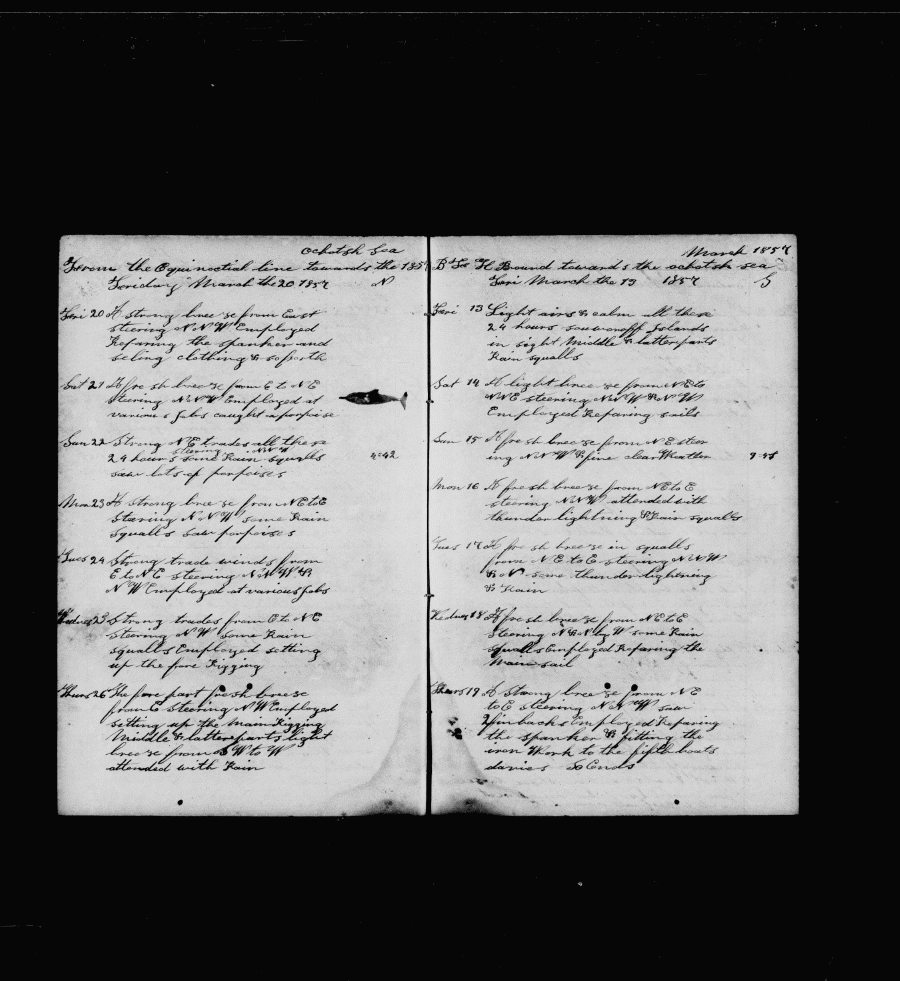 ochotsk Sea
From the Equinoctial line towards the
Feriday March the 20 1857 N
Feri 20 A strong bree se from East
steering N N W Employed
Reparing the spanker and
seling clothing & soforth
Sat 21 A fre sh bree se from E to N E
Steering N N W Employed at
various Jobs caught a porpoise
Sun 22 Strong N E trades all these
steering N N W
24 hours some Rain squalls 4=42
saw lots of porpoises
Mon 23 A strong bree se from N E to E
Stearing N N W some Rain
Squalls saw porpoises
Tues 24 Strong trade winds from
E to N E steering N N W &
N W Employed at various Jobs
Wednes 25 Strong trades from E to N E
steering N W some Rain
squalls Employed setting
up the fore Rigging
Thurs 26 The fore part fresh breese
from E Steering N W Employed
setting up the Main Rigging
Middle & latter parts light
bree se from S W to W
attended with Rain
March 1857
Bound towards the ochotsk sea
Feri March the 13 1857 S
Feri 13 Light airs & calm all these
24 hours Islands
in sight Middle & latter parts
Rain squalls
Sat 14 A light bree se from N E to
steering N N W & N W
Employed Reparing sails
Sun 15 A fresh bree se from N E steer
ing N N W & fine clear Weather
Mon 16 A fresh breese from N E to E
steering N N W attended with
thunder lightning & Rain squalls
Tues 17 A fre sh bree se in squalls
from N E to E steering N N W
& N some thunder lightening
& Rain
Wednes 18 A fre sh breese from N E to E
Steering N & N by W some Rain
squalls Employed Reparing the
Main sail
Thurs 19 A Strong bree se from N E
to E steering N N W saw
2 finbacks Employed Reparing
the spanker & fitting the
iron Work to the fifth boats
davies So Ends